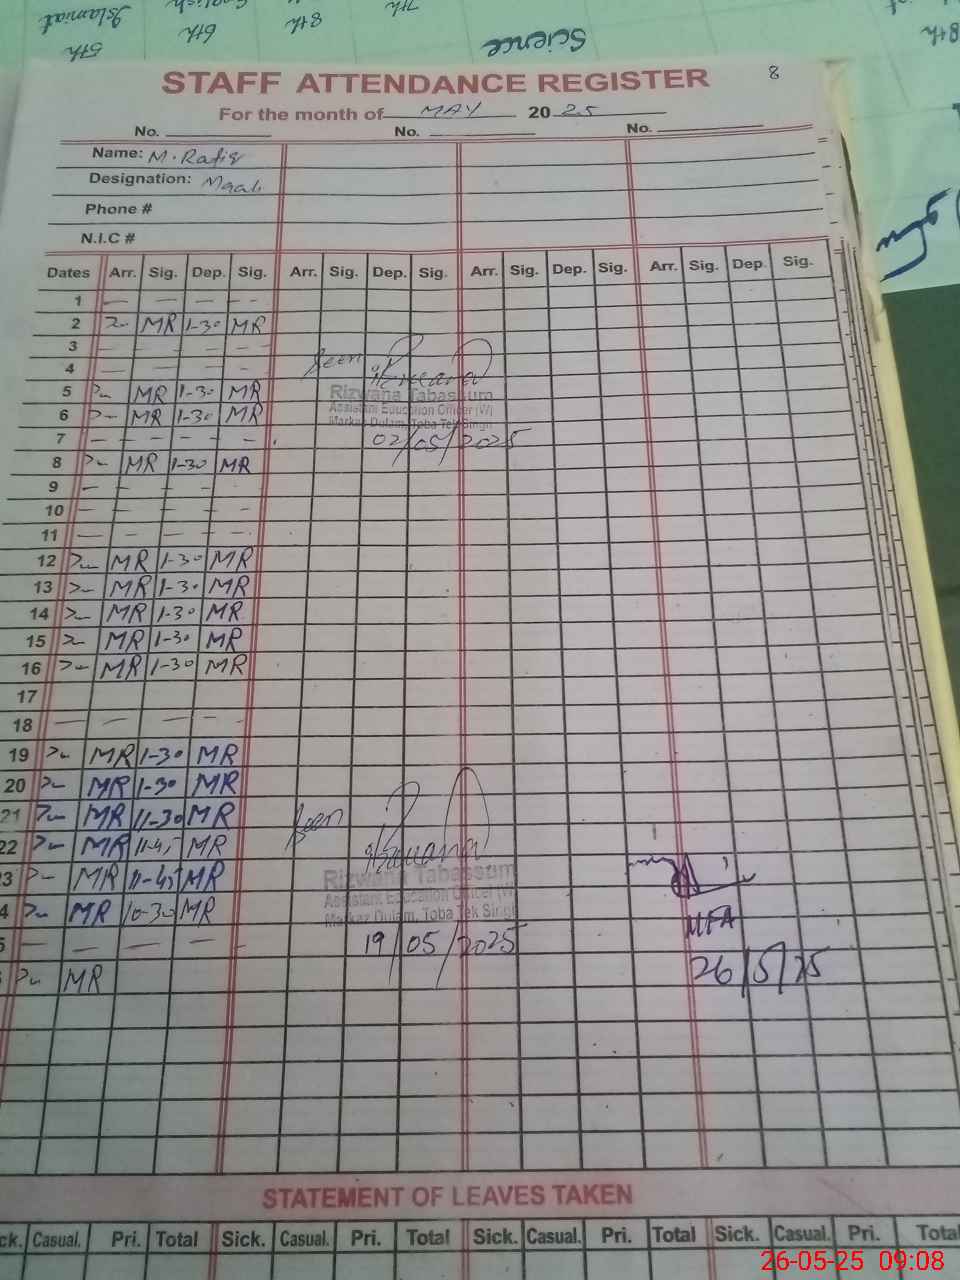 5th 6th 8th 7th
Islamiat English
Science
8th
STAFF ATTENDANCE REGISTER 8
For the month of MAY 2025
No. No. No.
Name: M. Rafiq
Designation:
Phone #
N.I.C #
Dates Arr. Sig. Dep. Sig. Arr. Sig. Dep. Sig. Arr. Sig. Dep. Sig. Arr. Sig. Dep. Sig.
1 — — — —
2 MR 1-30 MR
3 — — — —
4 — — — — Seen
5 MR 1-30 MR Rizwana Tabassum
6 MR 1-30 MR Assistant Education Officer (W)
Markaz Dulam, Toba Tek Singh
7 — — — — 02/05/2025
8 MR 1-30 MR
9 — — — —
10 — — — —
11 — — — —
12 MR 1-30 MR
13 MR 1-30 MR
14 MR 1-30 MR
15 MR 1-30 MR
16 MR 1-30 MR
17
18 — — — —
19 MR 1-30 MR
20 MR 1-30 MR
21 MR 11-30 MR Seen
22 MR 11-45 MR Rizwana
3 MR 11-45 MR Rizwana Tabassum
Assistant Education Officer (W)
4 MR 10-30 MR Markaz Dulam, Toba Tek Singh MEA
5 — — — — 19/05/2025
MR 26/5/25
STATEMENT OF LEAVES TAKEN
ck. Casual. Pri. Total Sick. Casual. Pri. Total Sick. Casual. Pri. Total Sick. Casual. Pri. Total
26-05-25 09:08